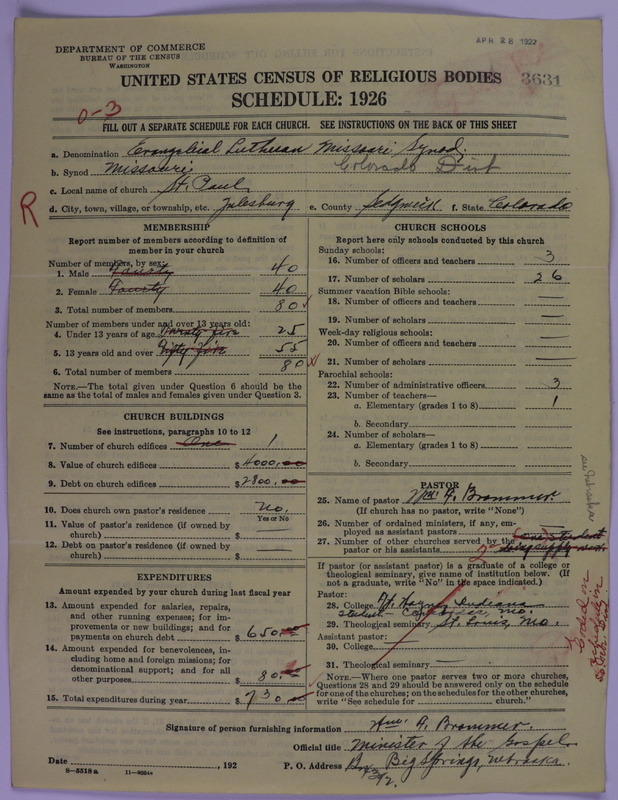 APR 28 1927
DEPARTMENT OF COMMERCE
BUREAU OF THE CENSUS
WASHINGTON
UNITED STATES CENSUS OF RELIGIOUS BODIES 3631
SCHEDULE: 1926
0-3
FILL OUT A SEPARATE SCHEDULE FOR EACH CHURCH. SEE INSTRUCTIONS ON THE BACK OF THIS SHEET
a. Denomination Evanglical Lutheran Missouri Synod.
b. Synod Missouri Colorado Dist
c. Local name of church St. Paul
R
d. City, town, village, or township, etc. Julesburg e. County Sedgwick f. State Colorado
MEMBERSHIP
Report number of members according to definition of member in your church
Number of members, by sex:
1. Male 40
2. Female Fourty 40
3. Total number of members 80
Number of members under and over 13 years old:
4. Under 13 years of age 25
5. 13 years old and over fifty five 55
6. Total number of members 80
NOTE.—The total given under Question 6 should be the same as the total of males and females given under Question 3.
CHURCH BUILDINGS
See instructions, paragraphs 10 to 12
7. Number of church edifices One 1
8. Value of church edifices $4000.00
9. Debt on church edifices $2800.00
10. Does church own pastor's residence No.
Yes or No
11. Value of pastor's residence (if owned by church) $ —
12. Debt on pastor's residence (if owned by church) $ —
EXPENDITURES
Amount expended by your church during last fiscal year
13. Amount expended for salaries, repairs, and other running expenses; for improvements or new buildings; and for payments on church debt $650.00
14. Amount expended for benevolences, including home and foreign missions; for denominational support; and for all other purposes 80.00
15. Total expenditures during year $730.00
CHURCH SCHOOLS
Report here only schools conducted by this church
Sunday schools:
16. Number of officers and teachers 3
17. Number of scholars 26
Summer vacation Bible schools:
18. Number of officers and teachers —
19. Number of scholars —
Week-day religious schools:
20. Number of officers and teachers —
21. Number of scholars —
Parochial schools:
22. Number of administrative officers 3
23. Number of teachers—
a. Elementary (grades 1 to 8) 1
b. Secondary
24. Number of scholars—
a. Elementary (grades 1 to 8)
b. Secondary
PASTOR
25. Name of pastor Wm. A. Brammer.
(If church has no pastor, write "None")
26. Number of ordained ministers, if any, employed as assistant pastors
27. Number of other churches served by the pastor or his assistants 2 (one) student
If pastor (or assistant pastor) is a graduate of a college or theological seminary, give name of institution below. (If not a graduate, write "No" in the space indicated.)
Pastor:
28. College Ft. Wayne Indiana
29. Theological seminary St. Louis, Mo.
Assistant pastor:
30. College —
31. Theological seminary —
NOTE.—Where one pastor serves two or more churches, Questions 28 and 29 should be answered only on the schedule for one of the churches; on the schedules for the other churches, write "See schedule for church."
Signature of person furnishing information Wm. A. Brammer.
Official title Minister of the Gospel
Date , 192 P. O. Address Big Springs, Nebraska.
8-5518a 11-9664